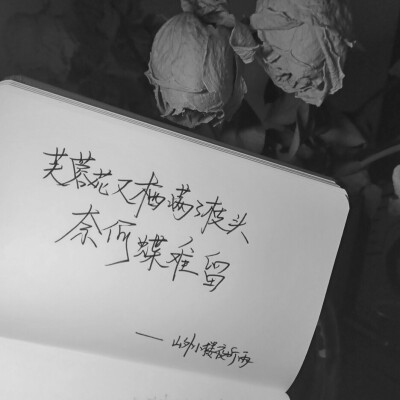 芙蓉花又栖满了枝头
奈何蝶难留
——山外小楼夜听雨